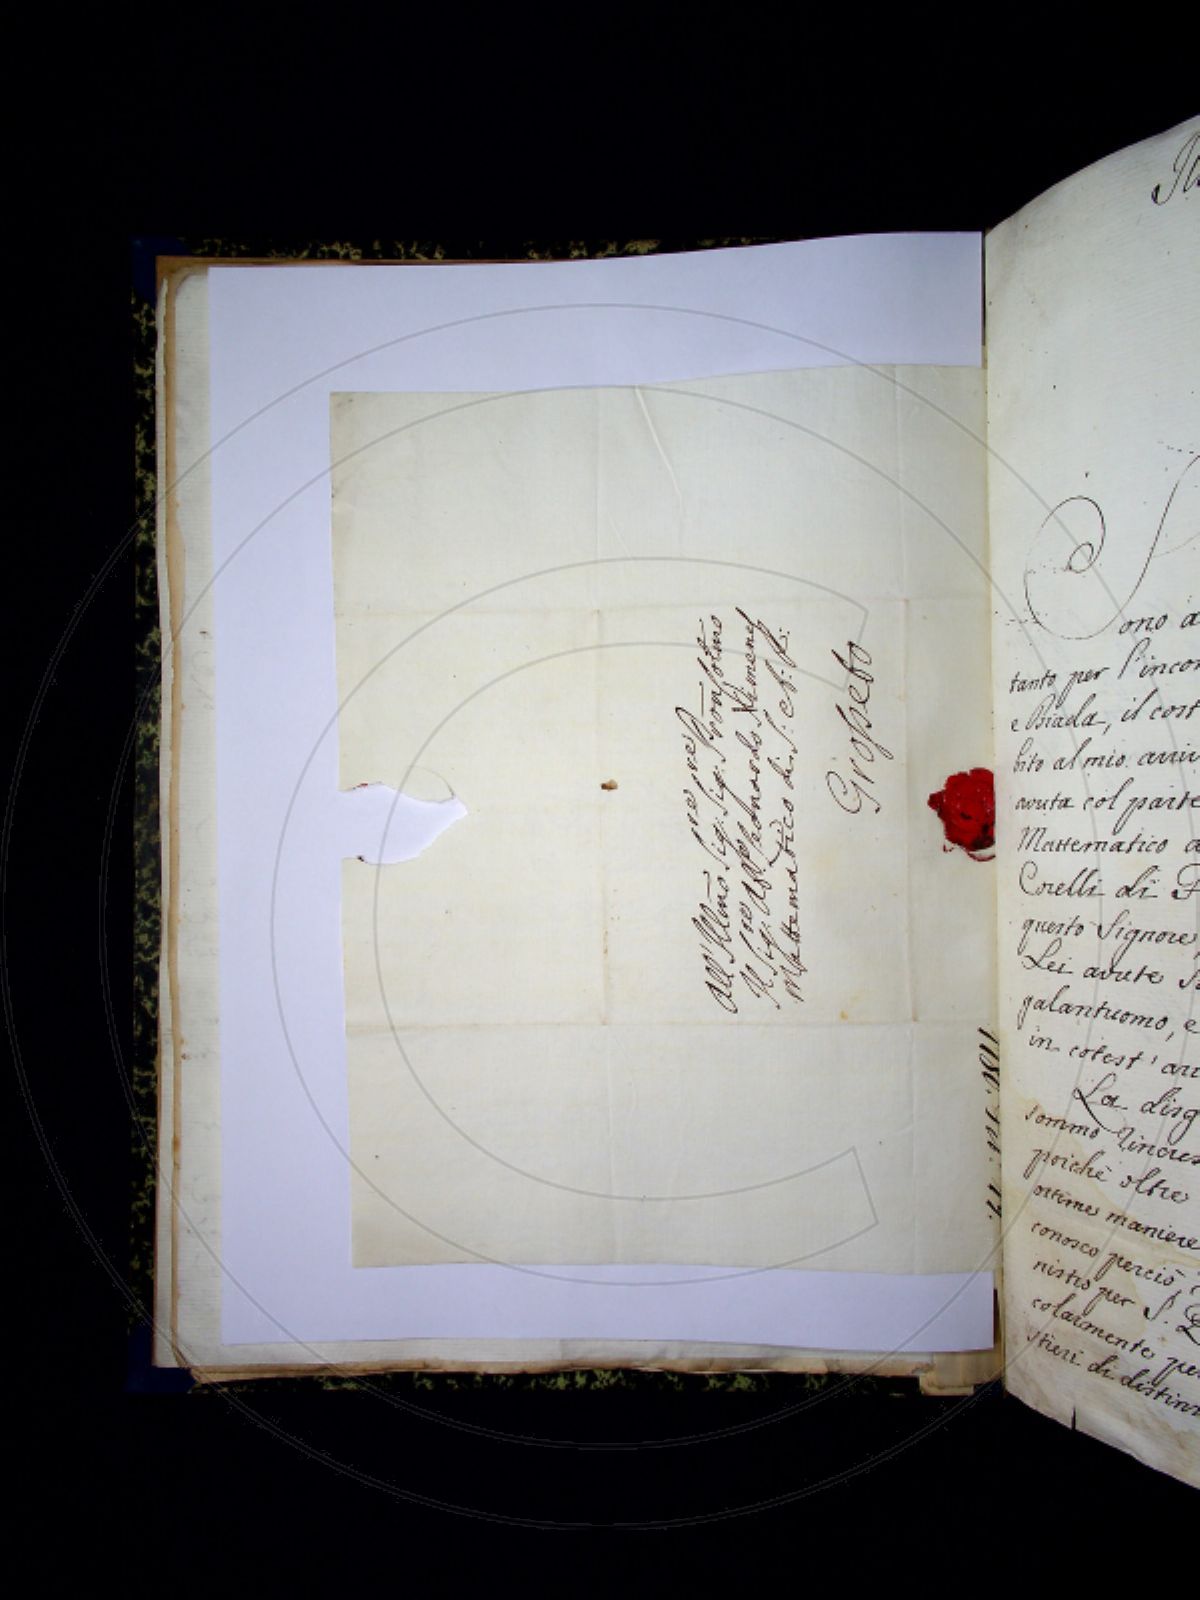 All' Ill̃mo Sig.re Sig.re Pron Col̃mo
Il Sig.re Ab.e Leonardo Ximenes
Mattematico di S. A. R:
Grosseto
ono a
tanto per l'incon
e Biada, il cost
bito al mio arriv
avuta col parte
Mattematico a
Corelli di F
questo Signore,
Lei avute
galantuomo, e
in cotest' arr
La disg
sommo rincres
poichè oltre
ottime maniere
conosco perciò,
nistro per S.
colarmente pe
stieri di distinz